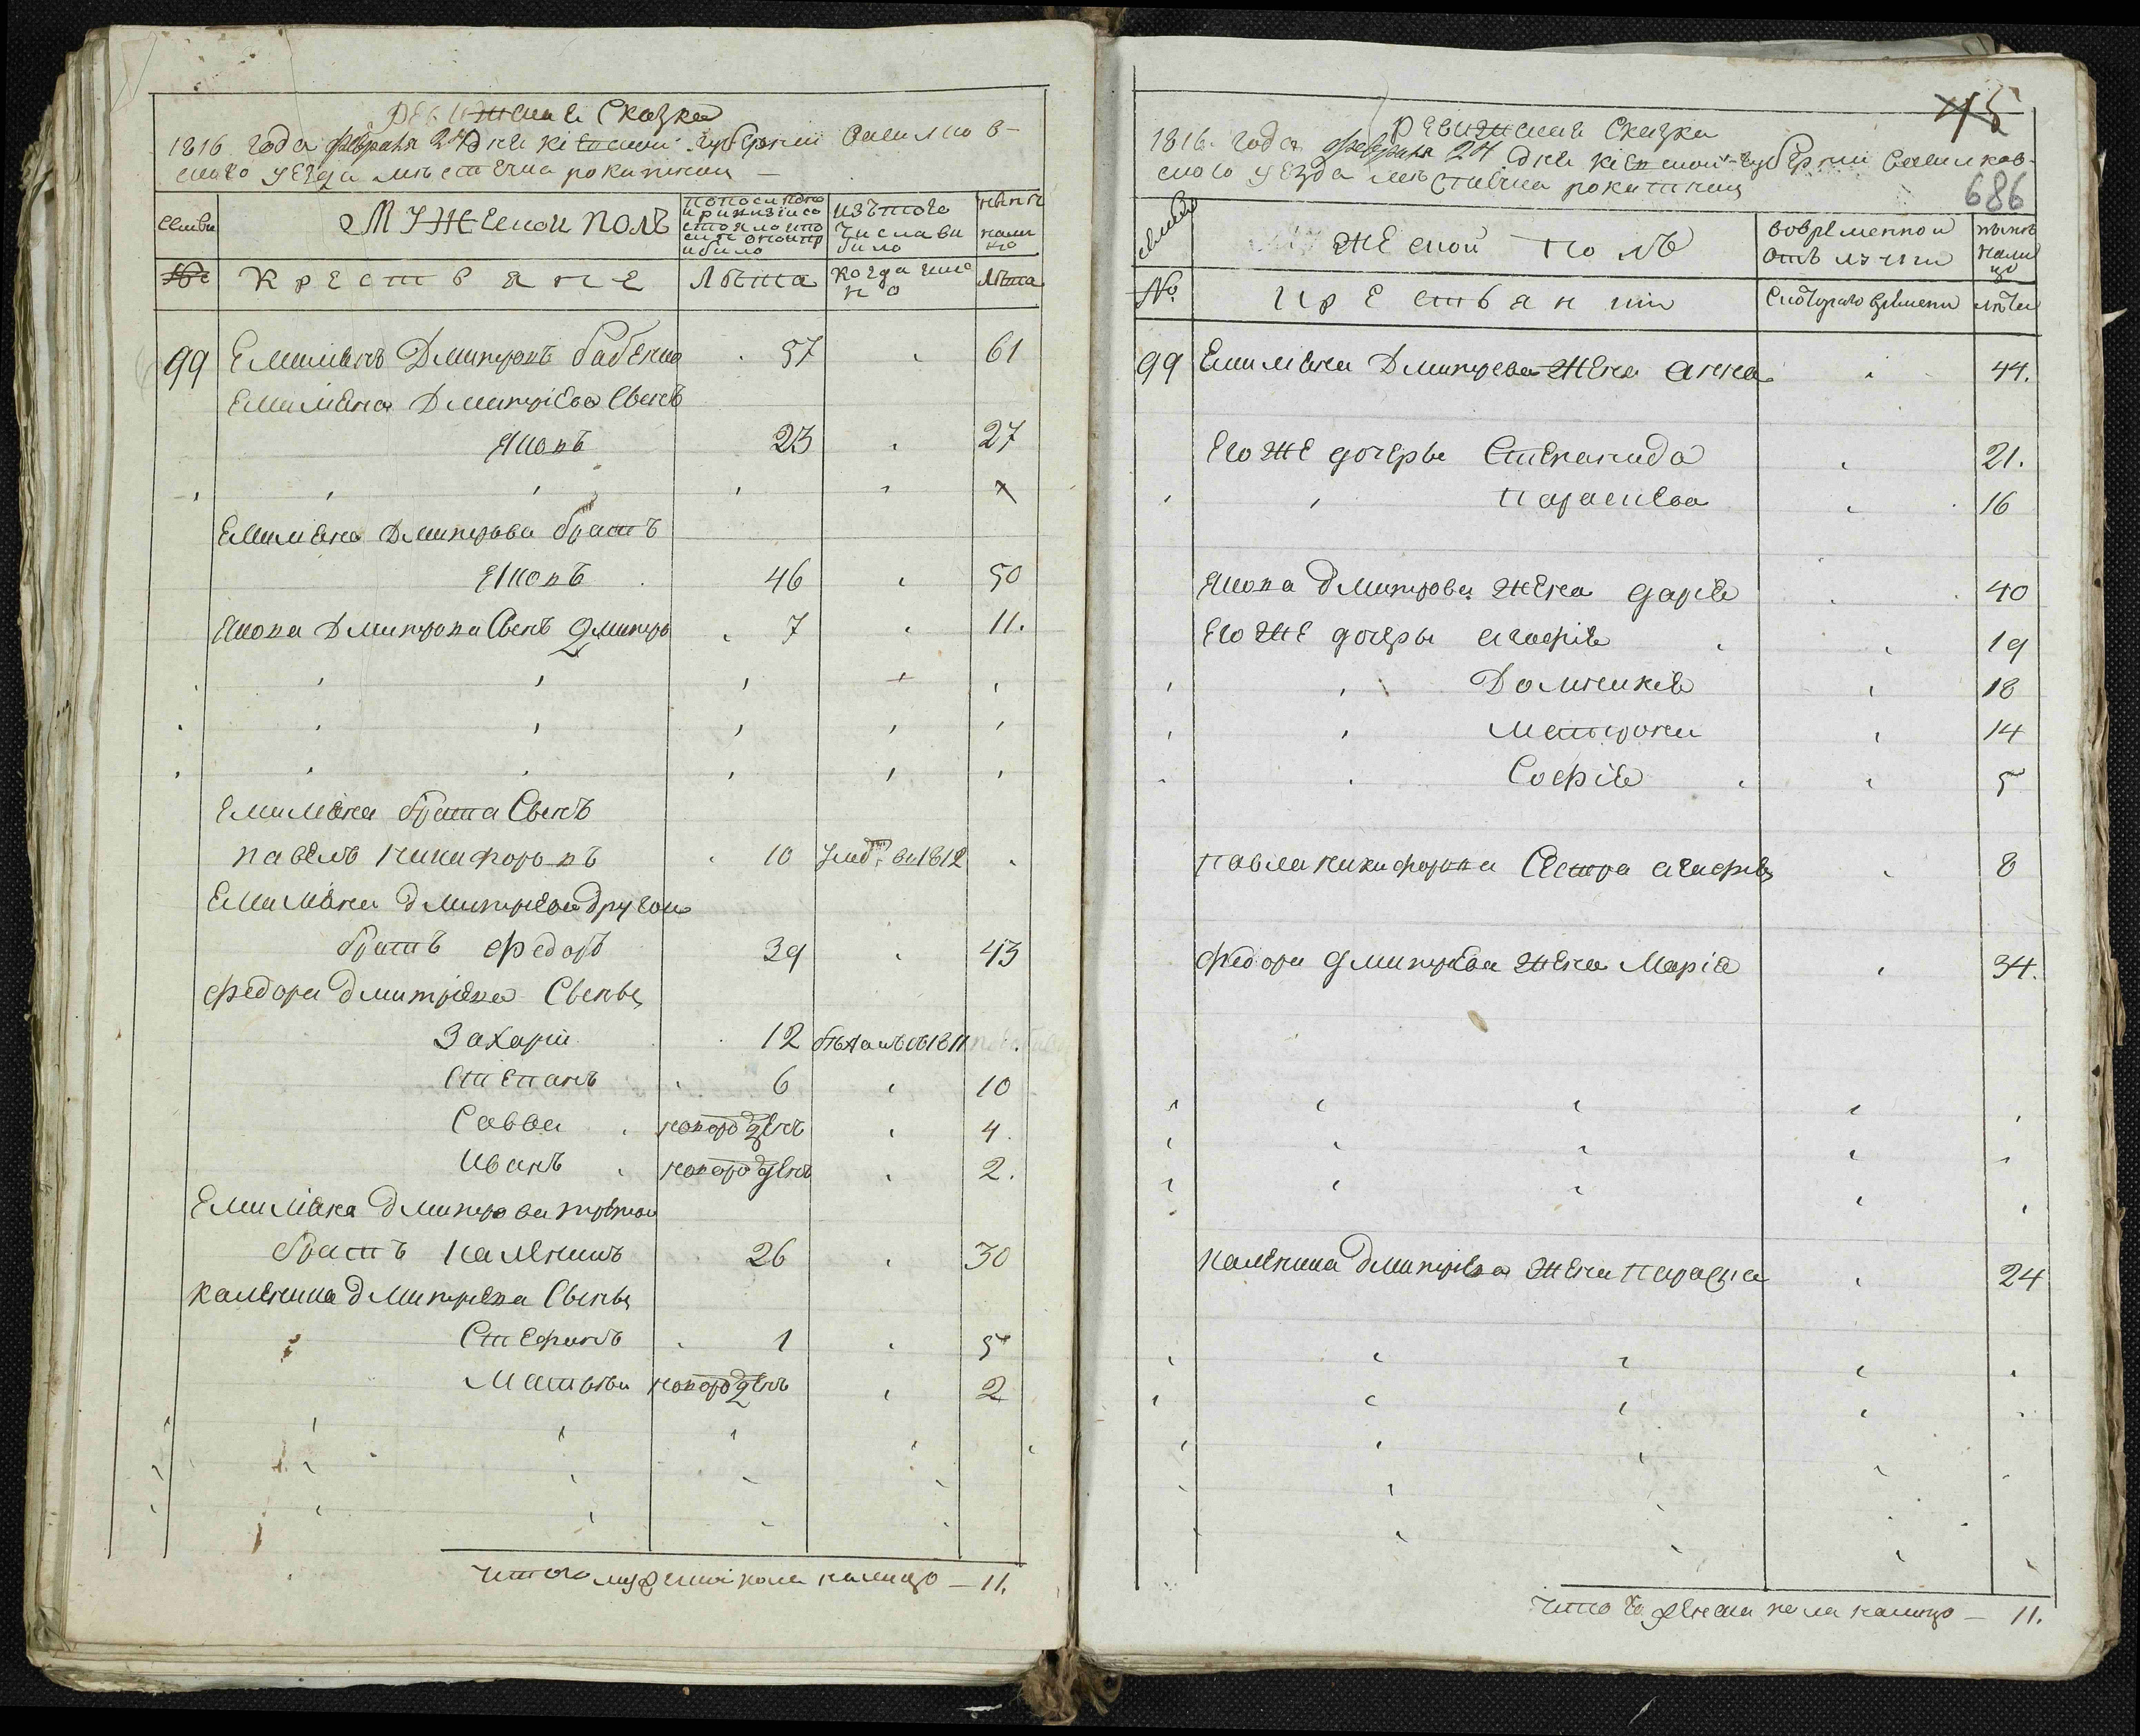 Ревижская Сказка
1816 года февраля 24 дня Кіевской губерніи Василков-
скаго уезда местечка рокитной
семьи
Мужеской полъ
изътого числа вы было
ныне на лицо
№
крестьяне
Лета
когда имянно
Лета
99 Емиліянъ Дмитровъ бабенко 57 61
Емиліяна Дмитріева Сынъ
Яковъ 23 27
Емиліяна Дмитрова братъ
Яковъ 46 50
Якова Дмитрова Сынъ Дмитро 7 11.
Емиліяна брата Сынъ
павелъ никифоровъ 10 умеръ въ 1812
Емиліяна дмитріева другой
братъ федоръ 39 43
федора дмитріева Сыны
Захарій 12 бежалъ въ 1811
Степанъ 6 10
Савва новорожденъ 4.
Иванъ новорожденъ 2.
Емиліяна дмитрова третой
братъ каленикъ 26 30
каленика дмитріева Сыны
Стефанъ 1 5
Матвей новорожденъ 2
Итого мужеска пола налицо — 11.
45
686
Ревижская Сказка
1816. года февраля 24 дня Кіевской губерніи Василков-
скаго уезда местечка рокитной
семьи
женской полъ
вовременной отлучки
ныне налицо
№
крестьянки
Скотораго времени
лета
99 Емиліяна Дмитрева жена анна 44.
Егоже дочеры Степанида 21.
парасковя 16
Якова дмитрова жена дарія 40
Егоже дочеры агафія 19
Домникія 18
Матрона 14
Софія 5
павла никифорова Сестра агафія 8
федора дмитріева жена Марія 34.
каленика дмитріева жена параска 24
Итого женска пола налицо — 11.